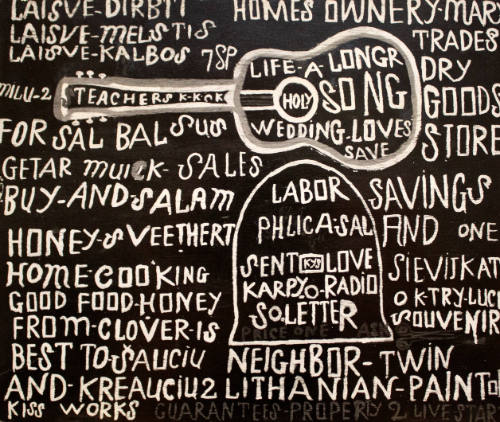 LAISVE-DIRBTI HOMES OWNERY-MARS
LAISVE-MELSTIS TRADES
LAISVE-KALBOS 7SP
LIFE-A LONGR DRY
MILU-2 TEACHERS K-K-OK HOLY SONG GOODS
FOR SAL BAL SUS WEDDING-LOVES STORE
SAVE
GETAR MUICK-SALES
BUY-AND-SALAM LABOR SAVINGS
HONEY-SVEETHERT PHLICA-SAL AND ONE
HOME-COOKING SENT LOVE SIEVISKAT
GOOD FOOD-HONEY KARPYO-RADIO OK-TRY-LUC
FROM-CLOVER-IS SO-LETTER SOUVENIR
PRICE ONE
BEST TO-ŠAUCIU NEIGHBOR-TWIN
AND-KREAUCIU2 LITHANIAN-PAINTO
KISS WORKS GUARANTEES-PROPERLY 2 LIVE STAR